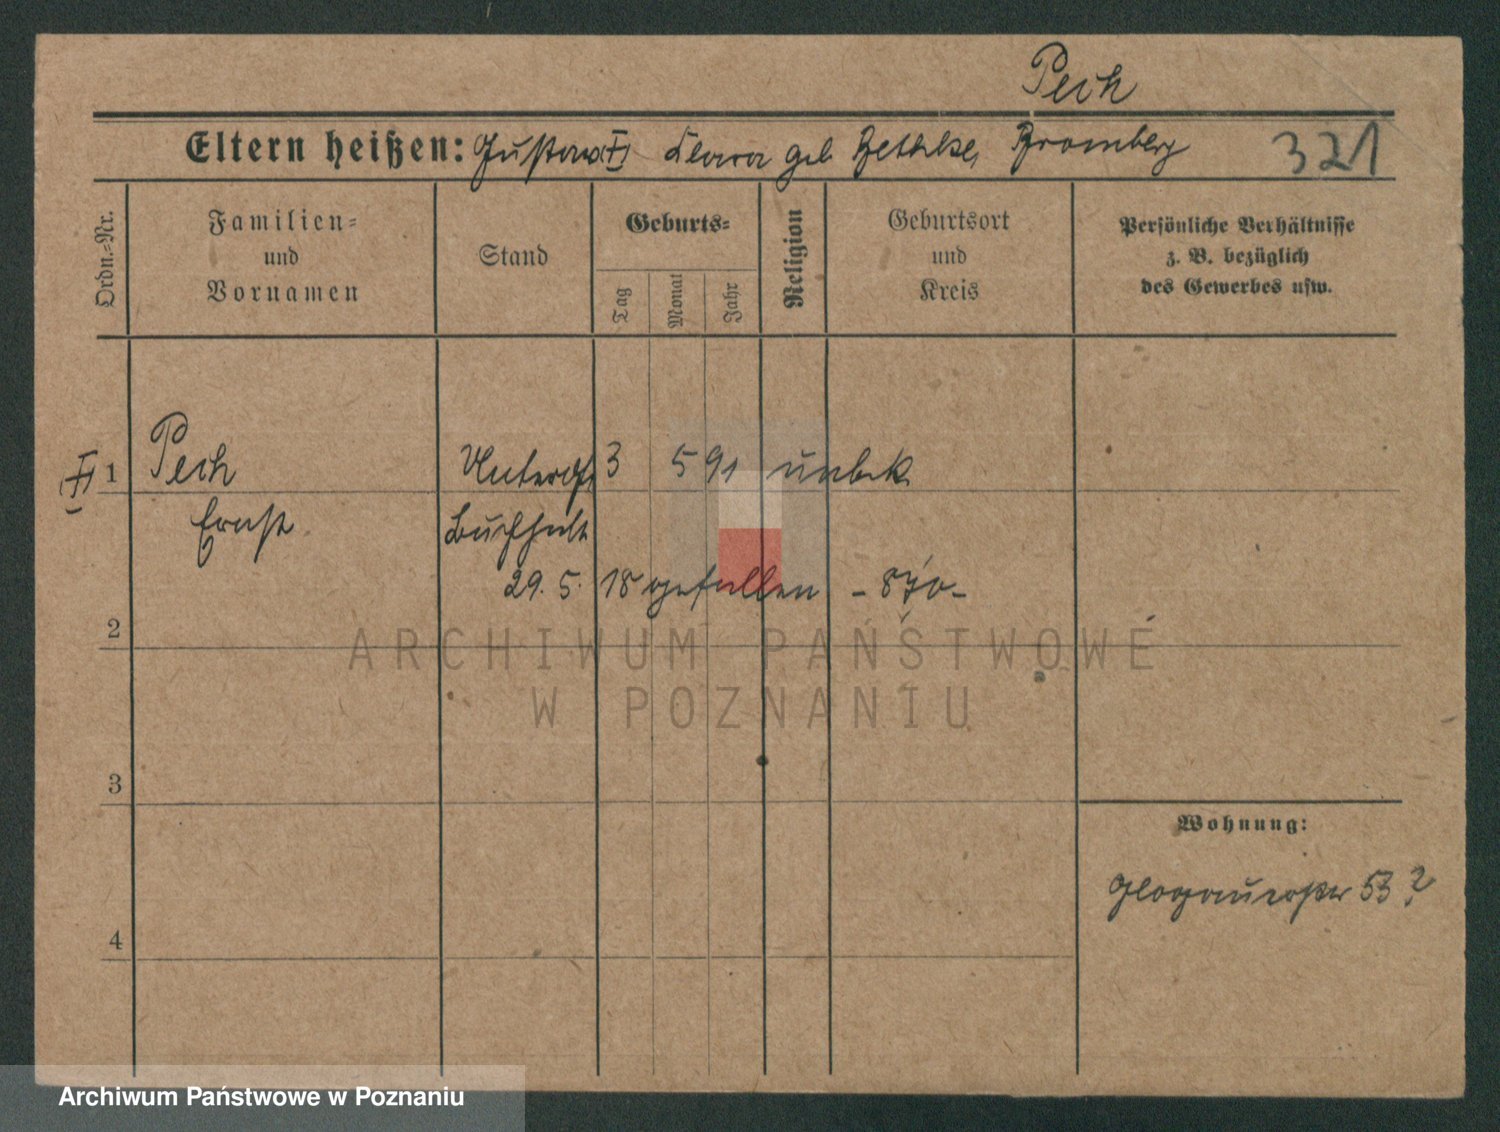 Pech
Eltern heißen: Gustav Clara geb. Bethke, Bromberg 321
Ordn.=Nr.
Familien=
und
Vornamen
Stand
Geburts=
Tag
Monat
Jahr
Religion
Geburtsort
und
Kreis
Persönliche Verhältnisse
z. B. bezüglich
des Gewerbes usw.
1 Pech Unteroffz 3 5 91 unbek
Ernst Buchhalt
29. 5. 18 gefallen
2
3
4
Wohnung:
Glogauerstr 53 ?
ARCHIWUM PAŃSTWOWE
W POZNANIU
Archiwum Państwowe w Poznaniu